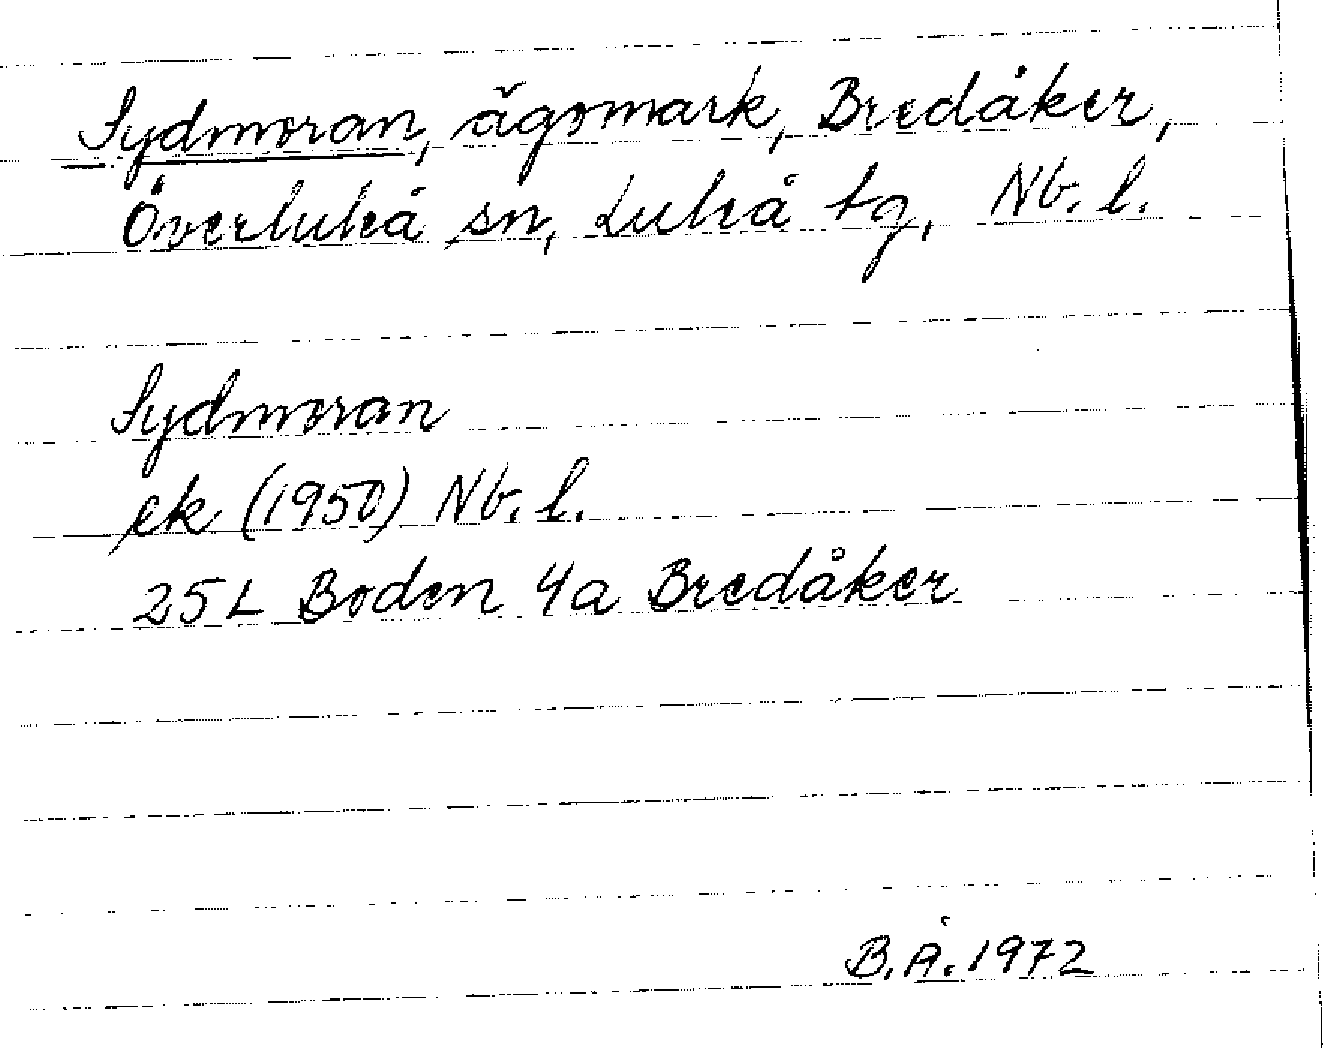 Sydmoran, ägomark, Bredåker,
Överluleå sn, Luleå tg, Nb. l.
Sydmoran
ek (1950) Nb. l.
25 L Boden 4a Bredåker
B. Å. 1972